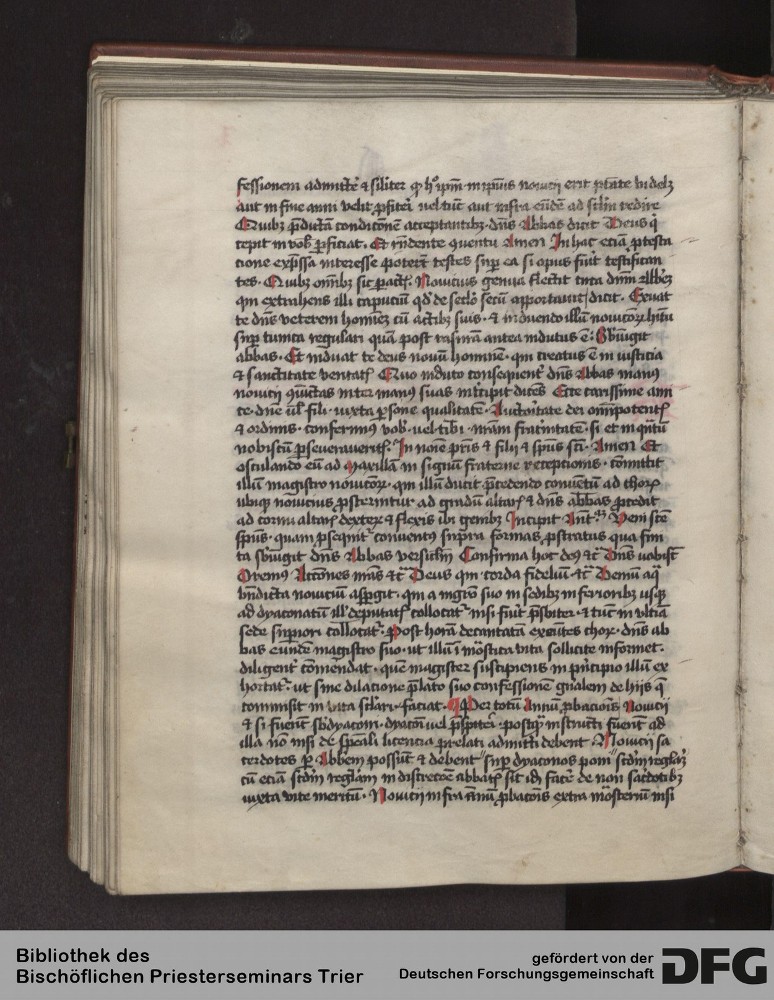 fessionem admittere et similiter qd hoc ipm in ipius novicii erit ptate videlz
aut in fine anni velit pfiteri vel tunc aut infra eunde ad sclm redire
Quibz pdictã condiconẽ acceptantibz dns Abbas dicit Deus qi
cepit in vob pficiat Et rndente quentu Amen In hac eciã ptesta
cione expssa interesse poterũt testes snp ea si opus fuit testifican
tes Quibz omnibz sic pactis Novicius genua flectit
qui extrahens illi capuciũ qd de seclo secũ apportavit dicit Exuat
te dns veterem hominẽ cũ actibz suis et induendo illũ novicorz hitu
snp tunica regulari quã post rasurã antea indutus ẽ Sbiugit
abbas Et induat te deus novũ hominẽ qui creatus ẽ in iusticia
et sanctitate veritatis Quo induto consequent dns Abbas manus
novicii iunctas inter manus suas incipit dicẽs Ecce carissime ami
ce dne ul fili iuxta psone qualitatẽ Auctoritate dei omipotentis
et ordinis confermus vob vel tibi nrãm fraternitatẽ si et in qntũ
nobiscũ pseveraverits In noie pris et filii et spus sci Amen Et
osculando eũ ad maxillam in signũ fraterne recepcionis comittit
illũ magistro novicorz qui illũ ducit pcedendo conventũ ad chorz
ubiqz novicius psternitur ad gradũ altaris et dns abbas pcedit
ad cornu altaris dexterz et flexis ibi genibz Incipit Ant Veni scẽ
spus quam psequit conventus supra formas pstratus qua fini
ta sbiugit dns Abbas versiclm Confirma hoc deus etc Dns vobisc
Oremus Actiones nras etc Deus qui corda fideliũ etc Demũ aqua
bndicta noviciũ aspgit qui a mgro suo in sedibz inferioribz usqz
ad dyaconatũ ill deputatis collocatr nisi fuit psbiter et tunc in ultia
sede supiori collocatr Post horã decantatã exeũtes chorz dns ab
bas eundẽ magistro suo ut illũ i mostica vita sollicite informet
diligent comendat quẽ magister suscipiens in principio illũ ex
hortatr ut sine dilacione plato suo confessionẽ gnalem de hiis q
commisit in vita sclari faciat Per totũ Annũ pbacionis Novicii
et si fuerit sbdyaconi dyaconi vel pspiteri postqz instructi fuerint ad
illa nõ nisi de speali licencia prelati admitti debent Novicii sa
cerdotes p Abbem possunt et debent snp dyaconos poni scdm reglaz
cũ eciã scdm reglam in discrecoe abbatis sit id facẽ de non sacdotibz
iuxta vite meritũ Novicii infra annũ pbacois extra mosteriũ nisi
Bibliothek des
Bischöflichen Priesterseminars Trier
gefördert von der
Deutschen Forschungsgemeinschaft DFG